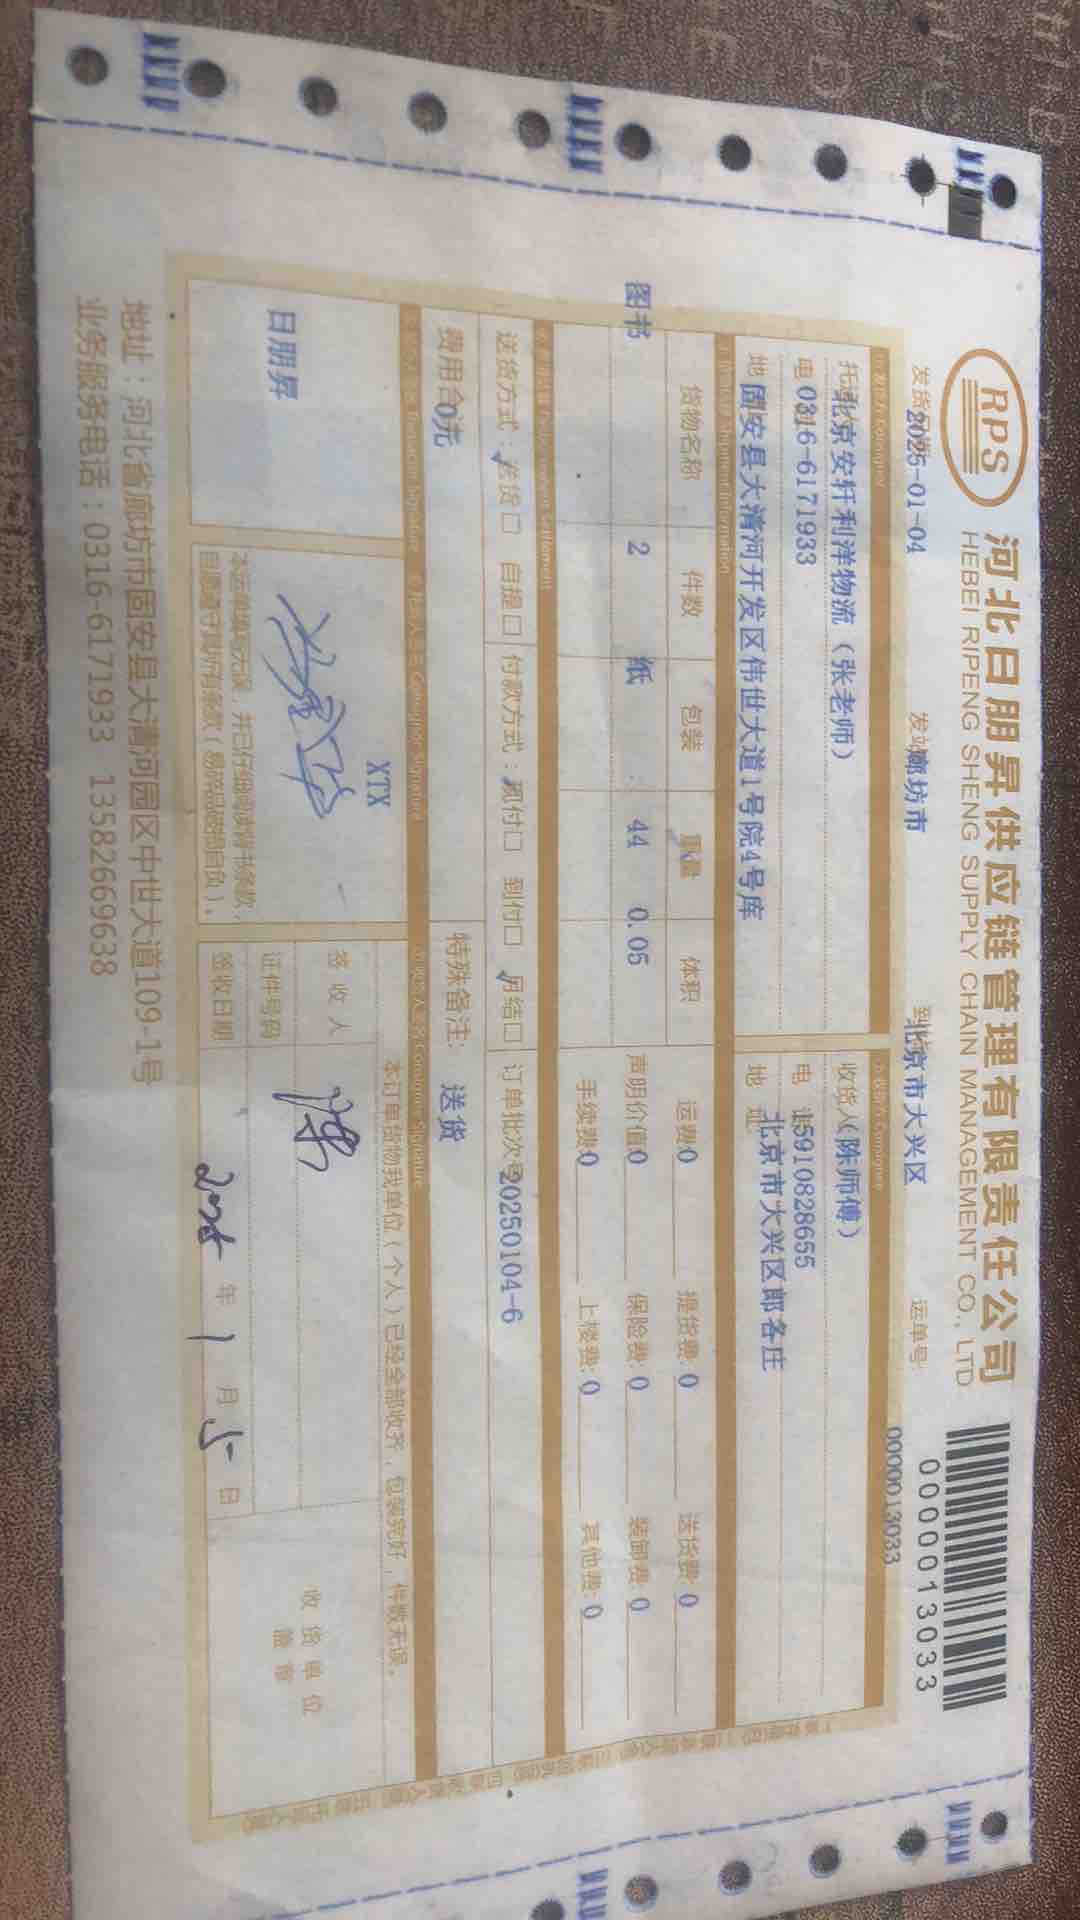 RPS
河北日朋昇供应链管理有限责任公司
HEBEI RIPENG SHENG SUPPLY CHAIN MANAGEMENT CO., LTD
0000013033
发货日期 2025-01-04 发站 廊坊市 到站 北京市大兴区 运单号: 0000013033
托运 北京安轩利洋物流（张老师）
电 0316-6171933
地 固安县大清河开发区伟世大道1号院4号库
收货人（陈师傅）
电 15910828655
地 北京市大兴区郎各庄
Shipment Information
货物名称 件数 包装 重量 体积
图书 2 纸 44 0.05
运费:0 提货费:0 送货费:0
声明价值:0 保险费:0 装卸费:0
手续费:0 上楼费:0 其他费:0
送货方式：送货 自提 付款方式：现付 到付 月结 订单批次号 20250104-6
费用合 0元 特殊备注: 送货
Consignor Signature
Consignee Signature
日朋昇
XTX
本订单货物我单位（个人）已经全部收齐，包装完好，件数无误。
签收人 陈
证件号码
签收日期 2025 年 1 月 5 日
收货单位
盖章
地址：河北省廊坊市固安县大清河园区中世大道109-1号
业务服务电话：0316-6171933 13582669638